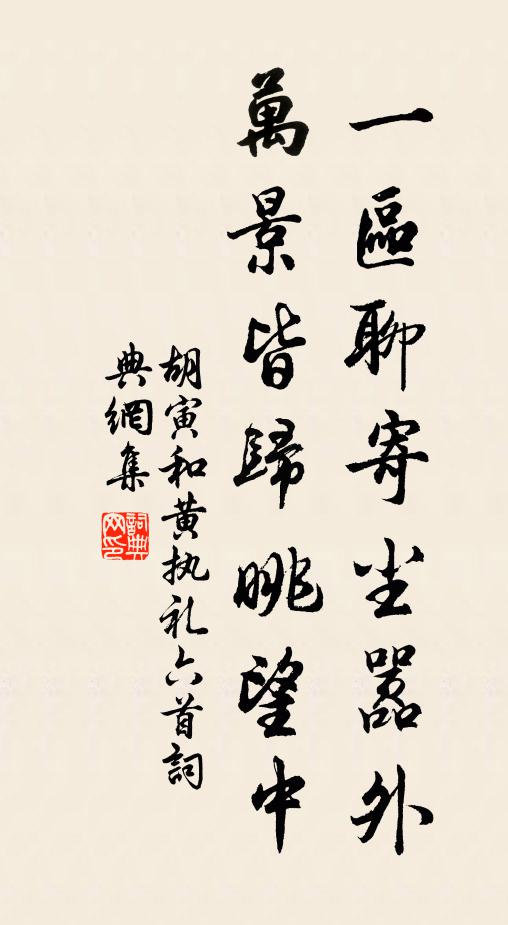 一區聊寄尘囂外
萬景皆歸眺望中
胡寅和黄执礼六首詞
典網集
詞典
网印